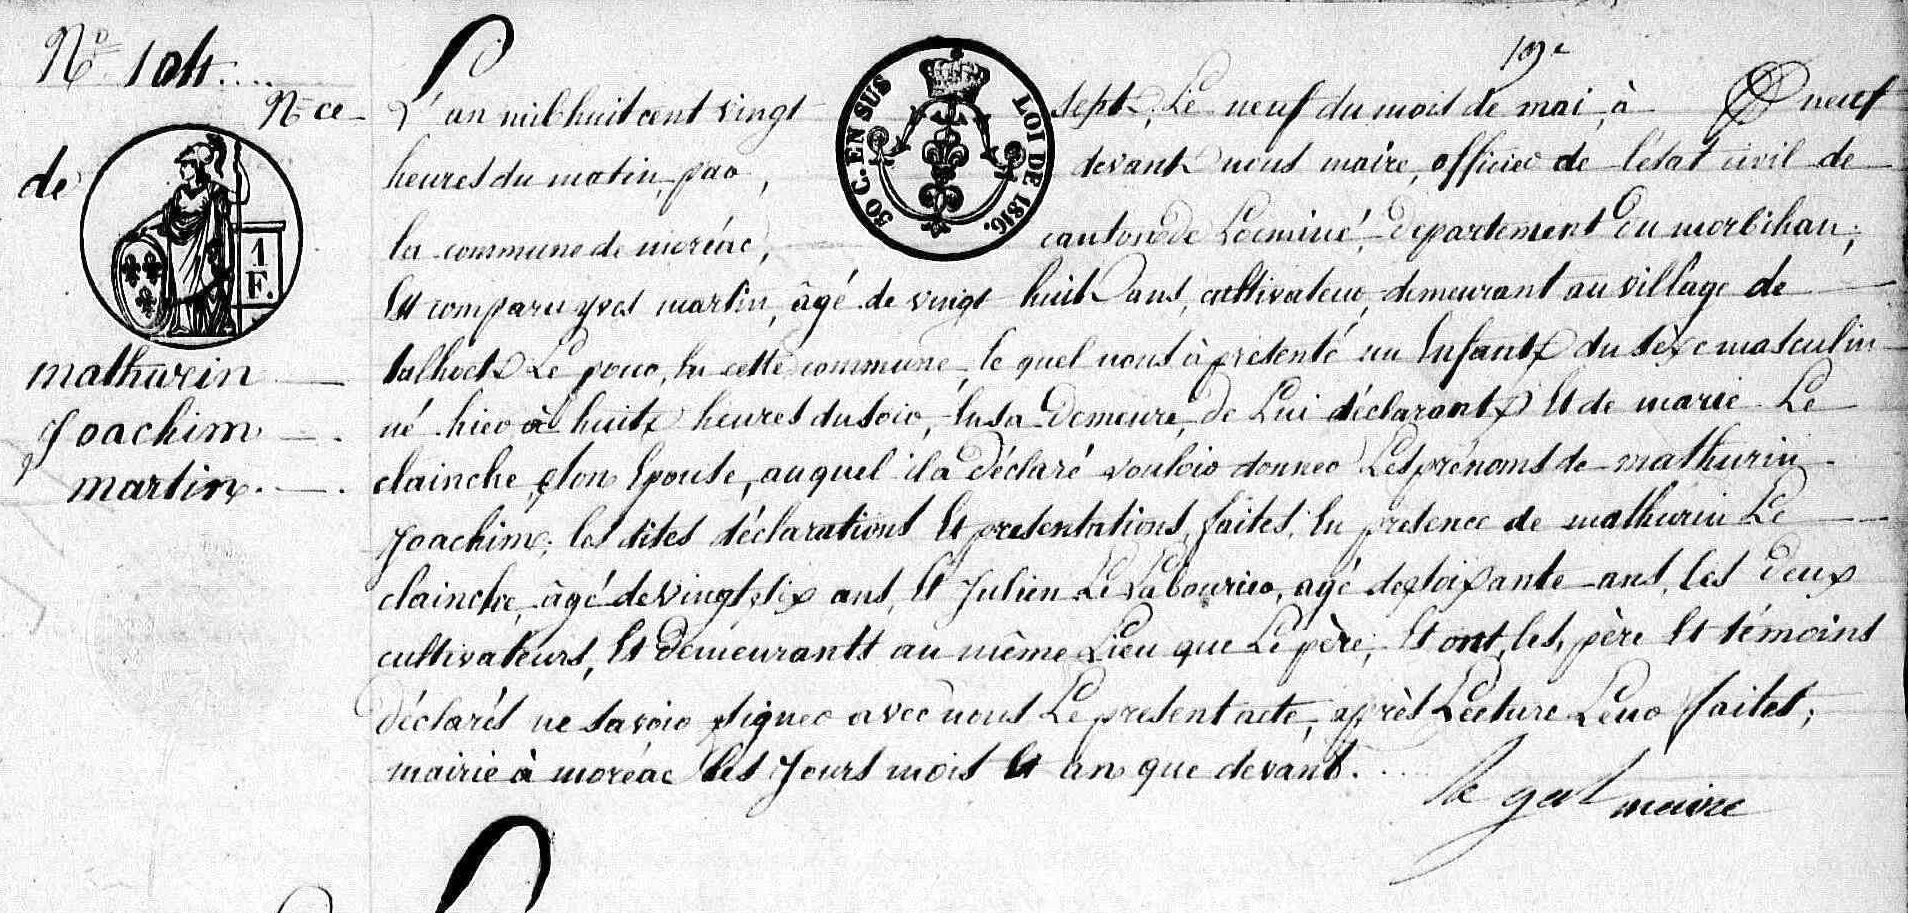 No 104.....
Nce
de
1 F.
mathurin
Joachim
martin.
50 C. EN SUS
LOI DE 1816.
L'an mil huit cent vingt sept, Le neuf du mois de mai, à neuf
heures du matin, par devant nous maire, officier de l'état civil de
la commune de moréac, canton de Locminé, département du morbihan;
Est comparu yves martin, âgé de vingt huit ans, cultivateur, demeurant au village de
talhoet Le pour, En cette commune, le quel nous à présenté un Enfant du séxe masculin
né hier à huit heures du soir, En sa Demeure, de Lui déclarant Et de marie Le
clainche, son Epouse, auquel il a déclaré vouloir donner Les prénoms de mathurin
Joachim; les dites déclarations Et présentations, faites, En présence de mathurin Le
clainche, âgé de vingt six ans, Et Julien Le Labourier, agé de soixante ans, Les Deux
cultivateurs, Et Demeurants au même Lieu que Le père; Et ont, les, père Et témoins
Déclarés ne savoir signer avec nous Le présent acte, après Lecture Leur faites;
mairie à moréac les Jours mois Et an que devant. . .
le gal maire